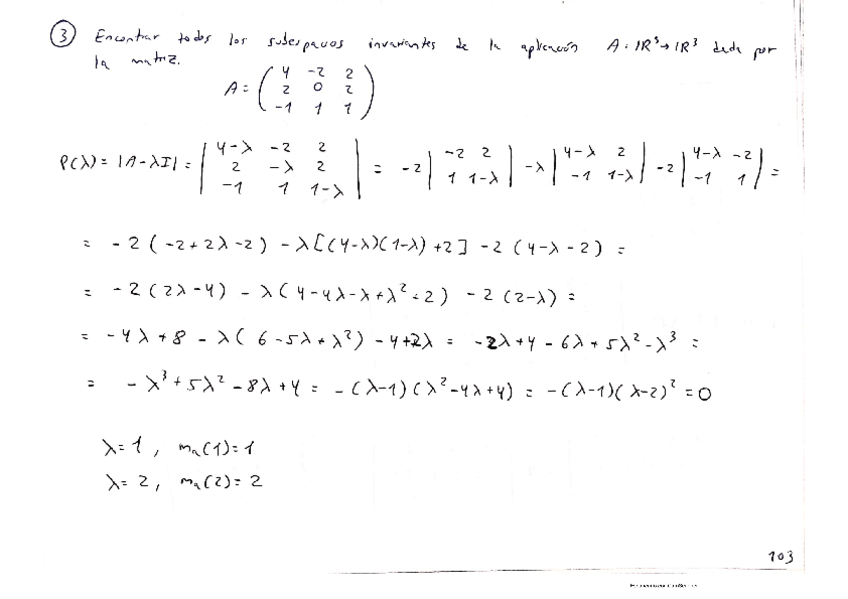 ③ Encontrar todos los subespacios invariantes de la aplicación A: IR³→IR³ dada por
la matriz.
A = ( 4 -2 2
2 0 2
-1 1 1 )
P(λ) = |A-λI| = | 4-λ -2 2 ; 2 -λ 2 ; -1 1 1-λ | = -2 | -2 2 ; 1 1-λ | -λ | 4-λ 2 ; -1 1-λ | -2 | 4-λ -2 ; -1 1 | =
= -2 (-2+2λ-2) -λ[(4-λ)(1-λ)+2] -2 (4-λ-2) =
= -2 (2λ-4) -λ(4-4λ-λ+λ²+2) -2 (2-λ) =
= -4λ+8 -λ(6-5λ+λ²) -4+2λ = -2λ+4-6λ+5λ²-λ³ =
= -λ³+5λ²-8λ+4 = -(λ-1)(λ²-4λ+4) = -(λ-1)(λ-2)² = 0
λ=1, mₐ(1)=1
λ=2, mₐ(2)=2
103